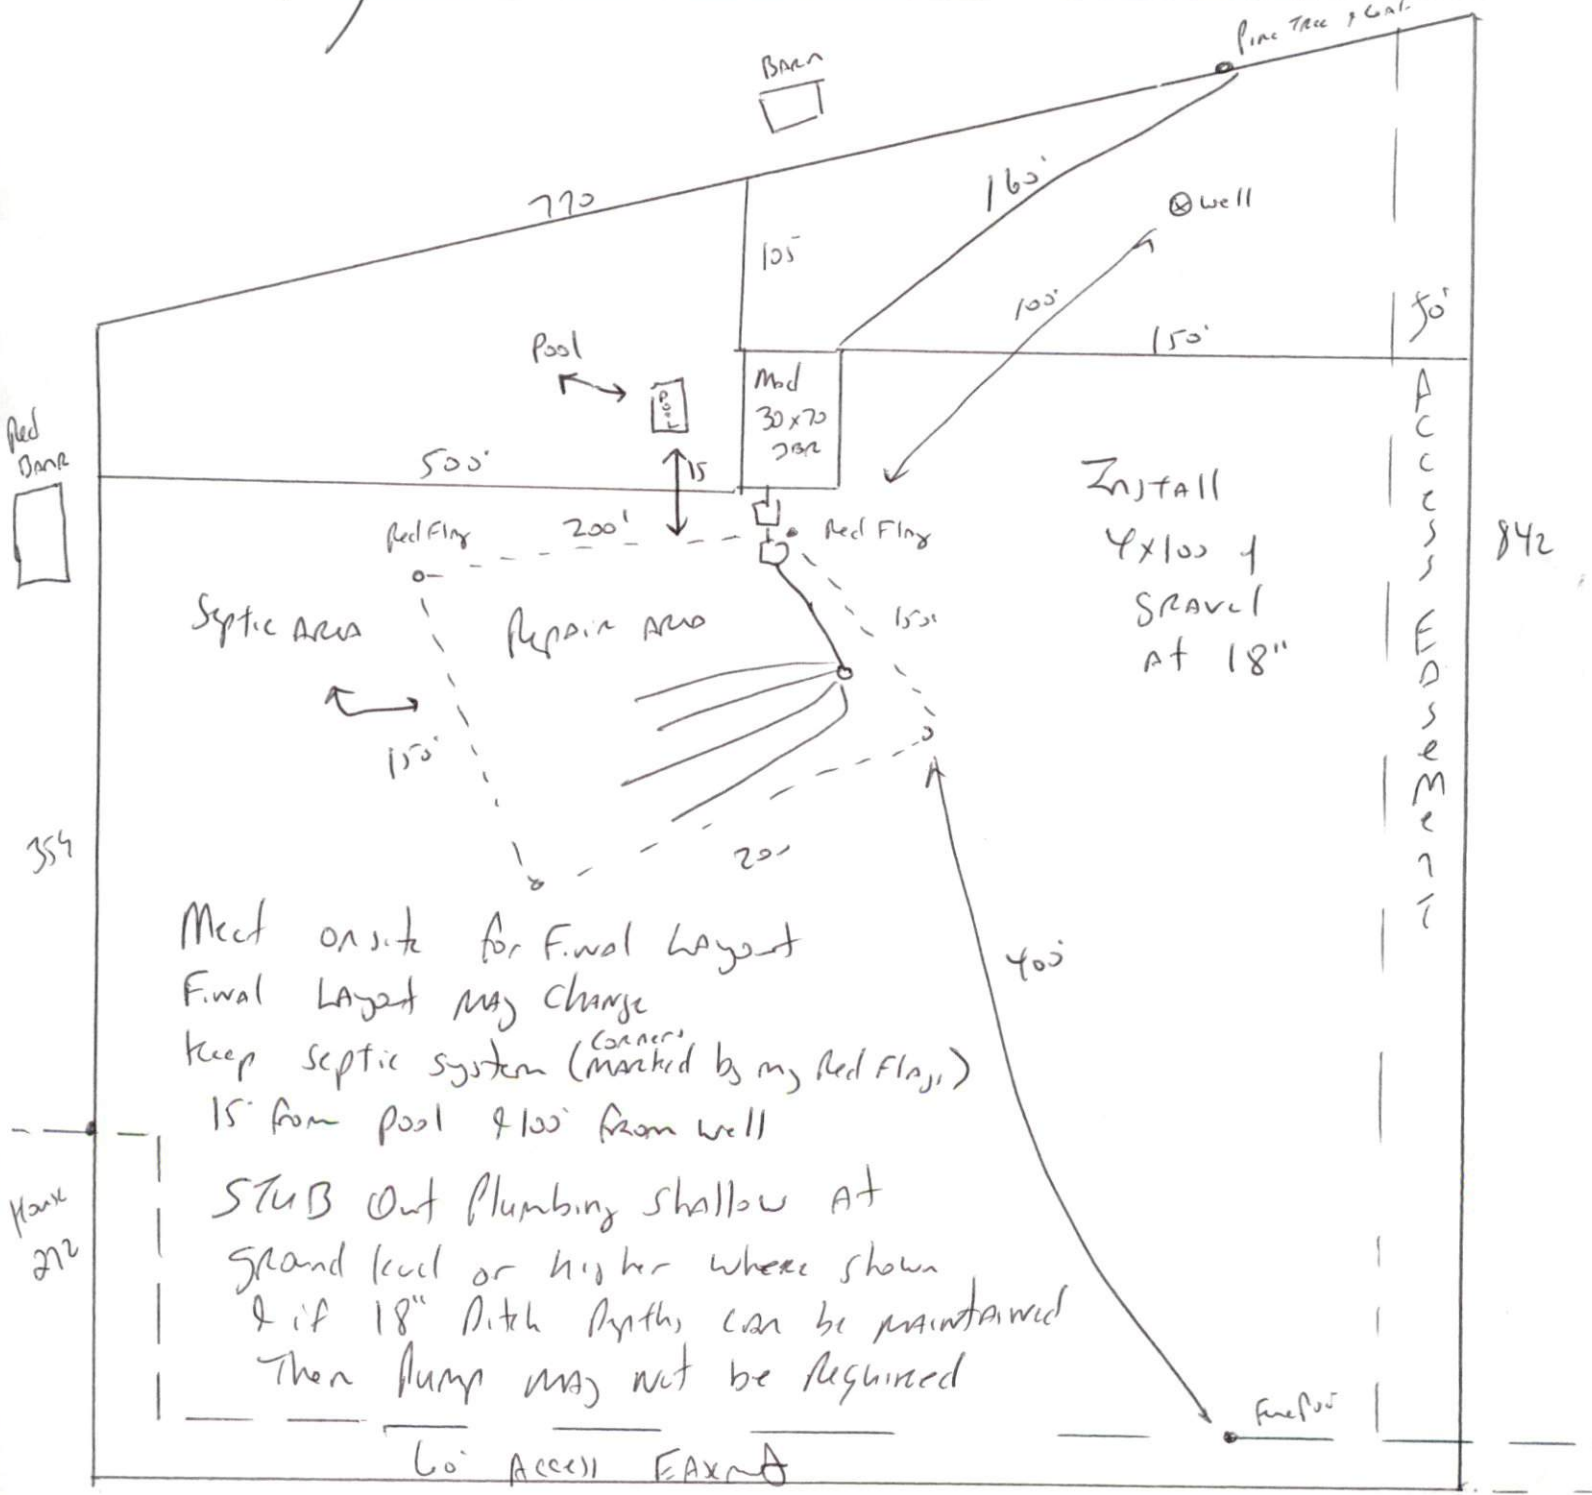 Pine Tree &
Barn
770
160'
⊗ well
105
100'
50'
150'
Pool
Pool
Mod
30x70
3BR
Red
Barn
500'
15
Install
4x100 of
Gravel
At 18"
Access Easement
842
Red Flag
200'
Red Flag
Septic Area
Repair Area
150'
150'
354
200
400'
Meet onsite for Final Layout
Final Layout may change
Keep septic system (corners marked by my Red Flags)
15' from pool & 100' from well
STUB Out Plumbing shallow At
ground level or higher where shown
& if 18" Ditch Depths can be maintained
Then Pump may not be Required
House
272
60' Access